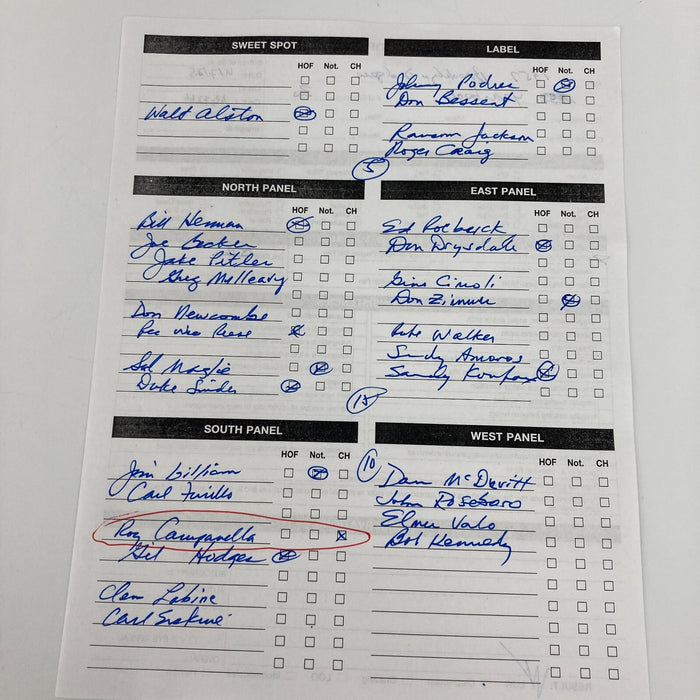 SWEET SPOT
HOF Not. CH
Walt Alston
LABEL
HOF Not. CH
Johnny Podres
Don Bessent
Ransom Jackson
Roger Craig
5
NORTH PANEL
HOF Not. CH
Bill Herman
Joe Becker
Jake Pitler
Greg Mulleavy
Don Newcombe
Pee Wee Reese
Sal Maglie
Duke Snider
EAST PANEL
HOF Not. CH
Ed Roebuck
Don Drysdale
Gino Cimoli
Don Zimmer
Rube Walker
Sandy Amoros
Sandy Koufax
15
SOUTH PANEL
HOF Not. CH
Jim Gilliam
Carl Furillo
Roy Campanella
Gil Hodges
Clem Labine
Carl Erskine
WEST PANEL
HOF Not. CH
10
Dan McDevitt
John Roseboro
Elmer Valo
Bob Kennedy